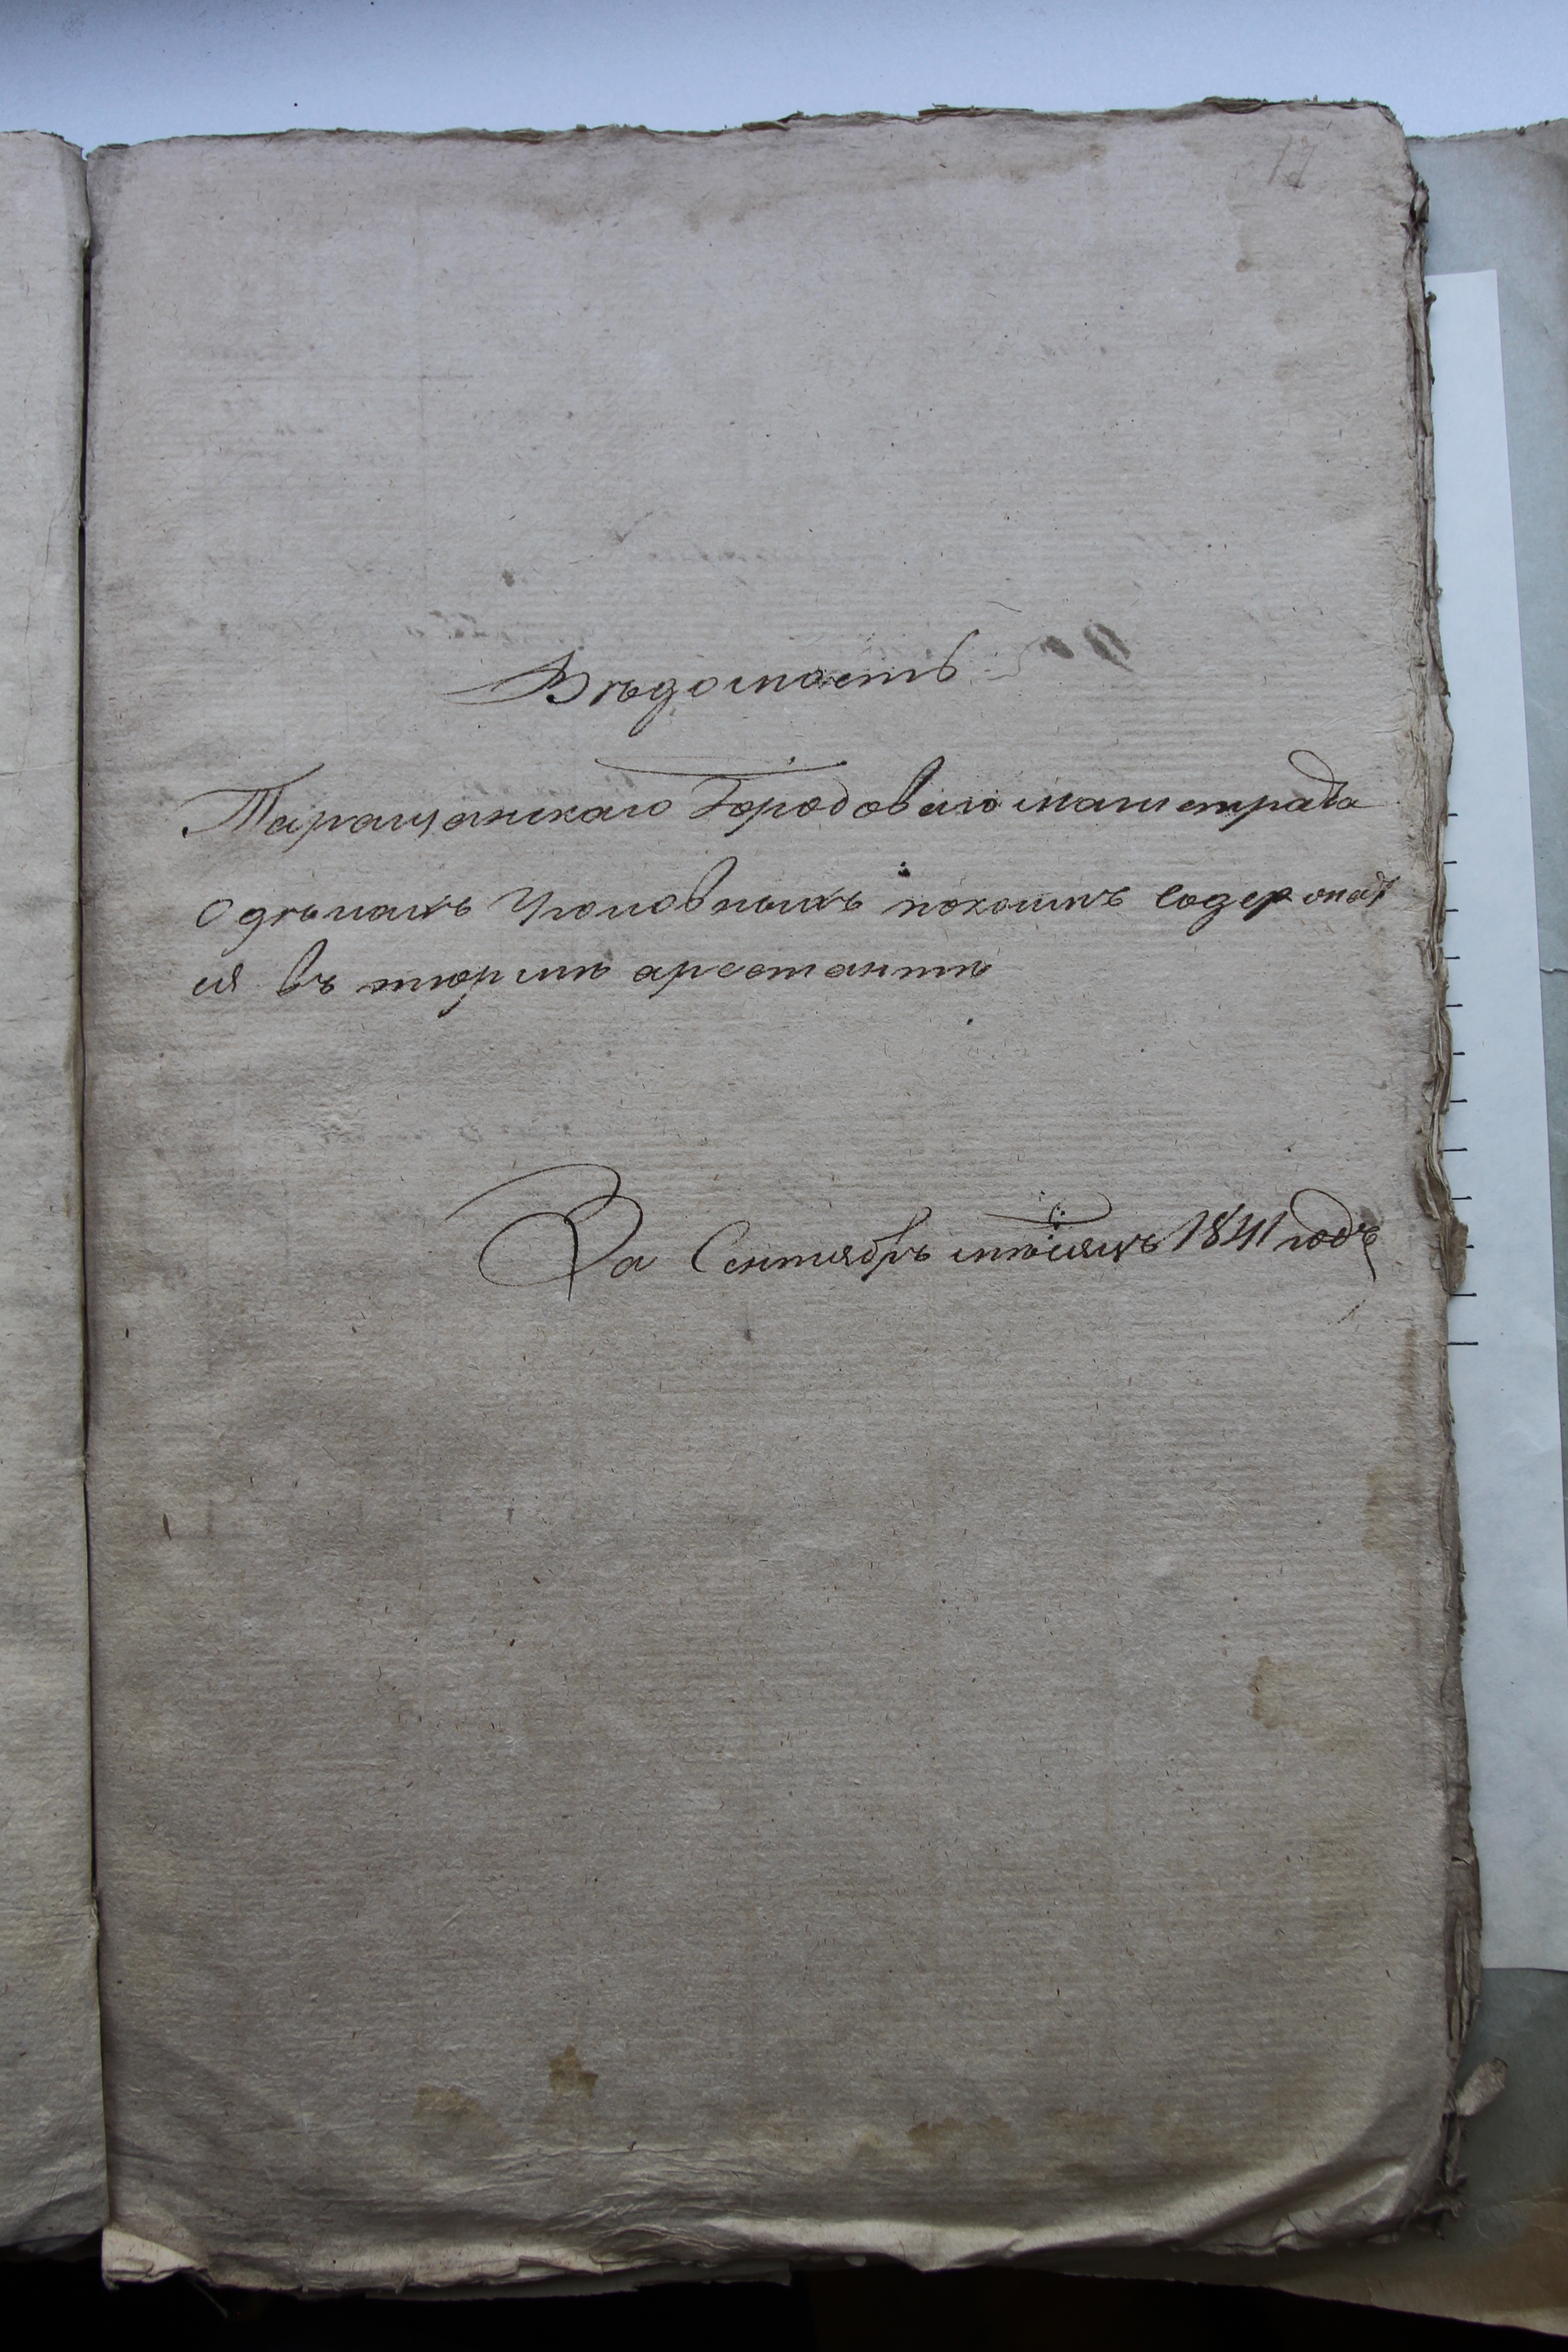 17
Вѣдомость
Таращанскаго Городового магистрата
О дѣлахъ Уголовныхъ покоимъ содержат
ся въ тюрьмѣ арестанты
За Сентябрь мѣсяцъ 1841 годъ